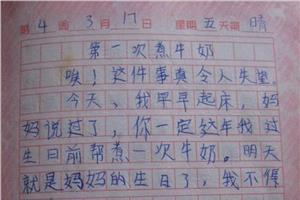 第4周3月17日 星期五天气晴
第一次煮牛奶
唉！这件事真令人失望。
今天、我早早起床，妈
妈说过了，你一定这年我过
生日前帮煮一次牛奶。明天
就是妈妈的生日了，我不得